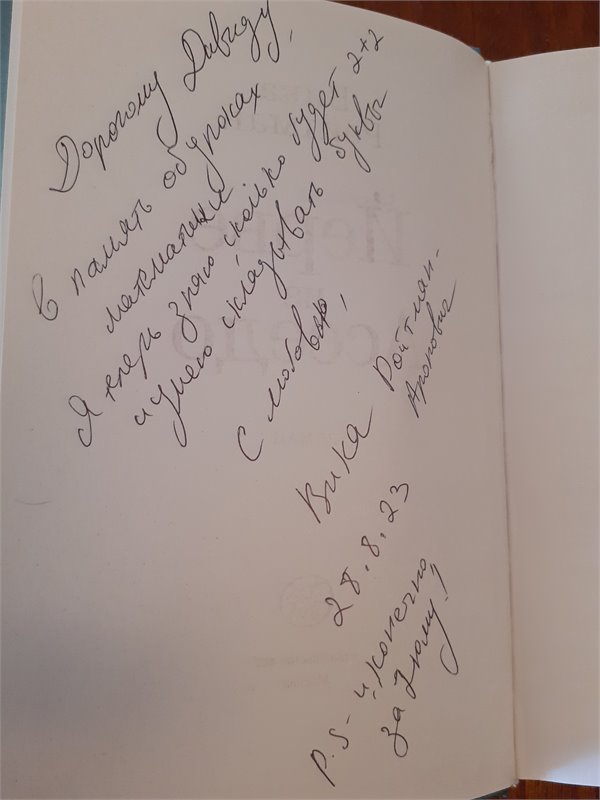 Дорогому Давиду,
в память об уроках
математики
Я теперь знаю сколько будет 2+2
и умею складывать буквы
С любовью,
Вика Ройтман-
Аронович
28.8.23
P.S - и конечно
за Зюму!